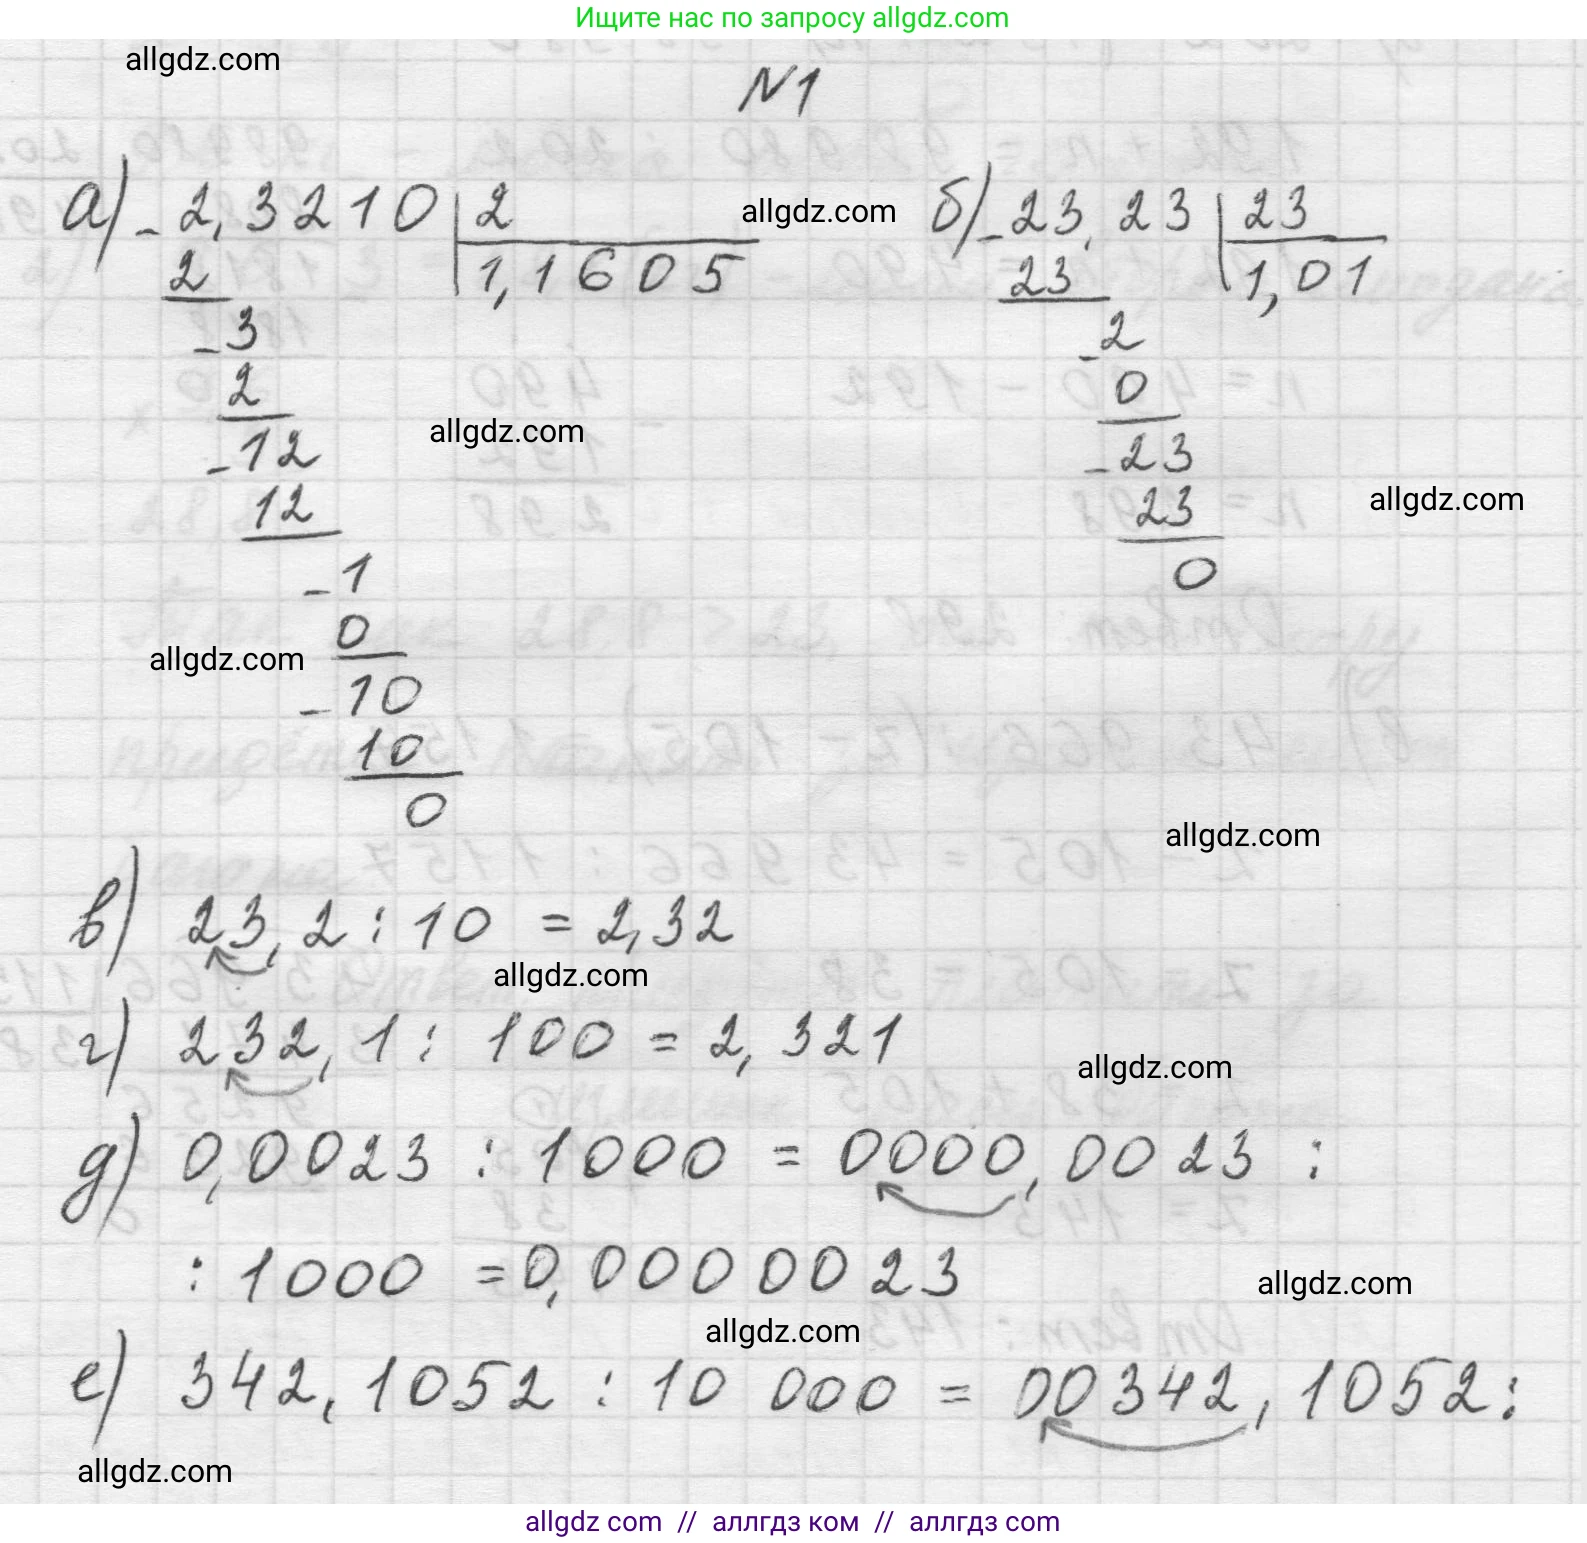 Ищите нас по запросу allgdz.com
allgdz.com
N1
а) - 2,3210 | 2
allgdz.com
б) - 23,23 | 23
2
1,1605
23
1,01
- 3
- 2
2
0
- 12
allgdz.com
- 23
12
23
allgdz.com
- 1
0
0
allgdz.com
- 10
10
0
allgdz.com
в) 23,2 : 10 = 2,32
allgdz.com
г) 232,1 : 100 = 2,321
allgdz.com
д) 0,0023 : 1000 = 0000,0023 :
: 1000 = 0,0000023
allgdz.com
allgdz.com
е) 342,1052 : 10 000 = 00342,1052 :
allgdz.com
allgdz com // аллгдз ком // аллгдз com